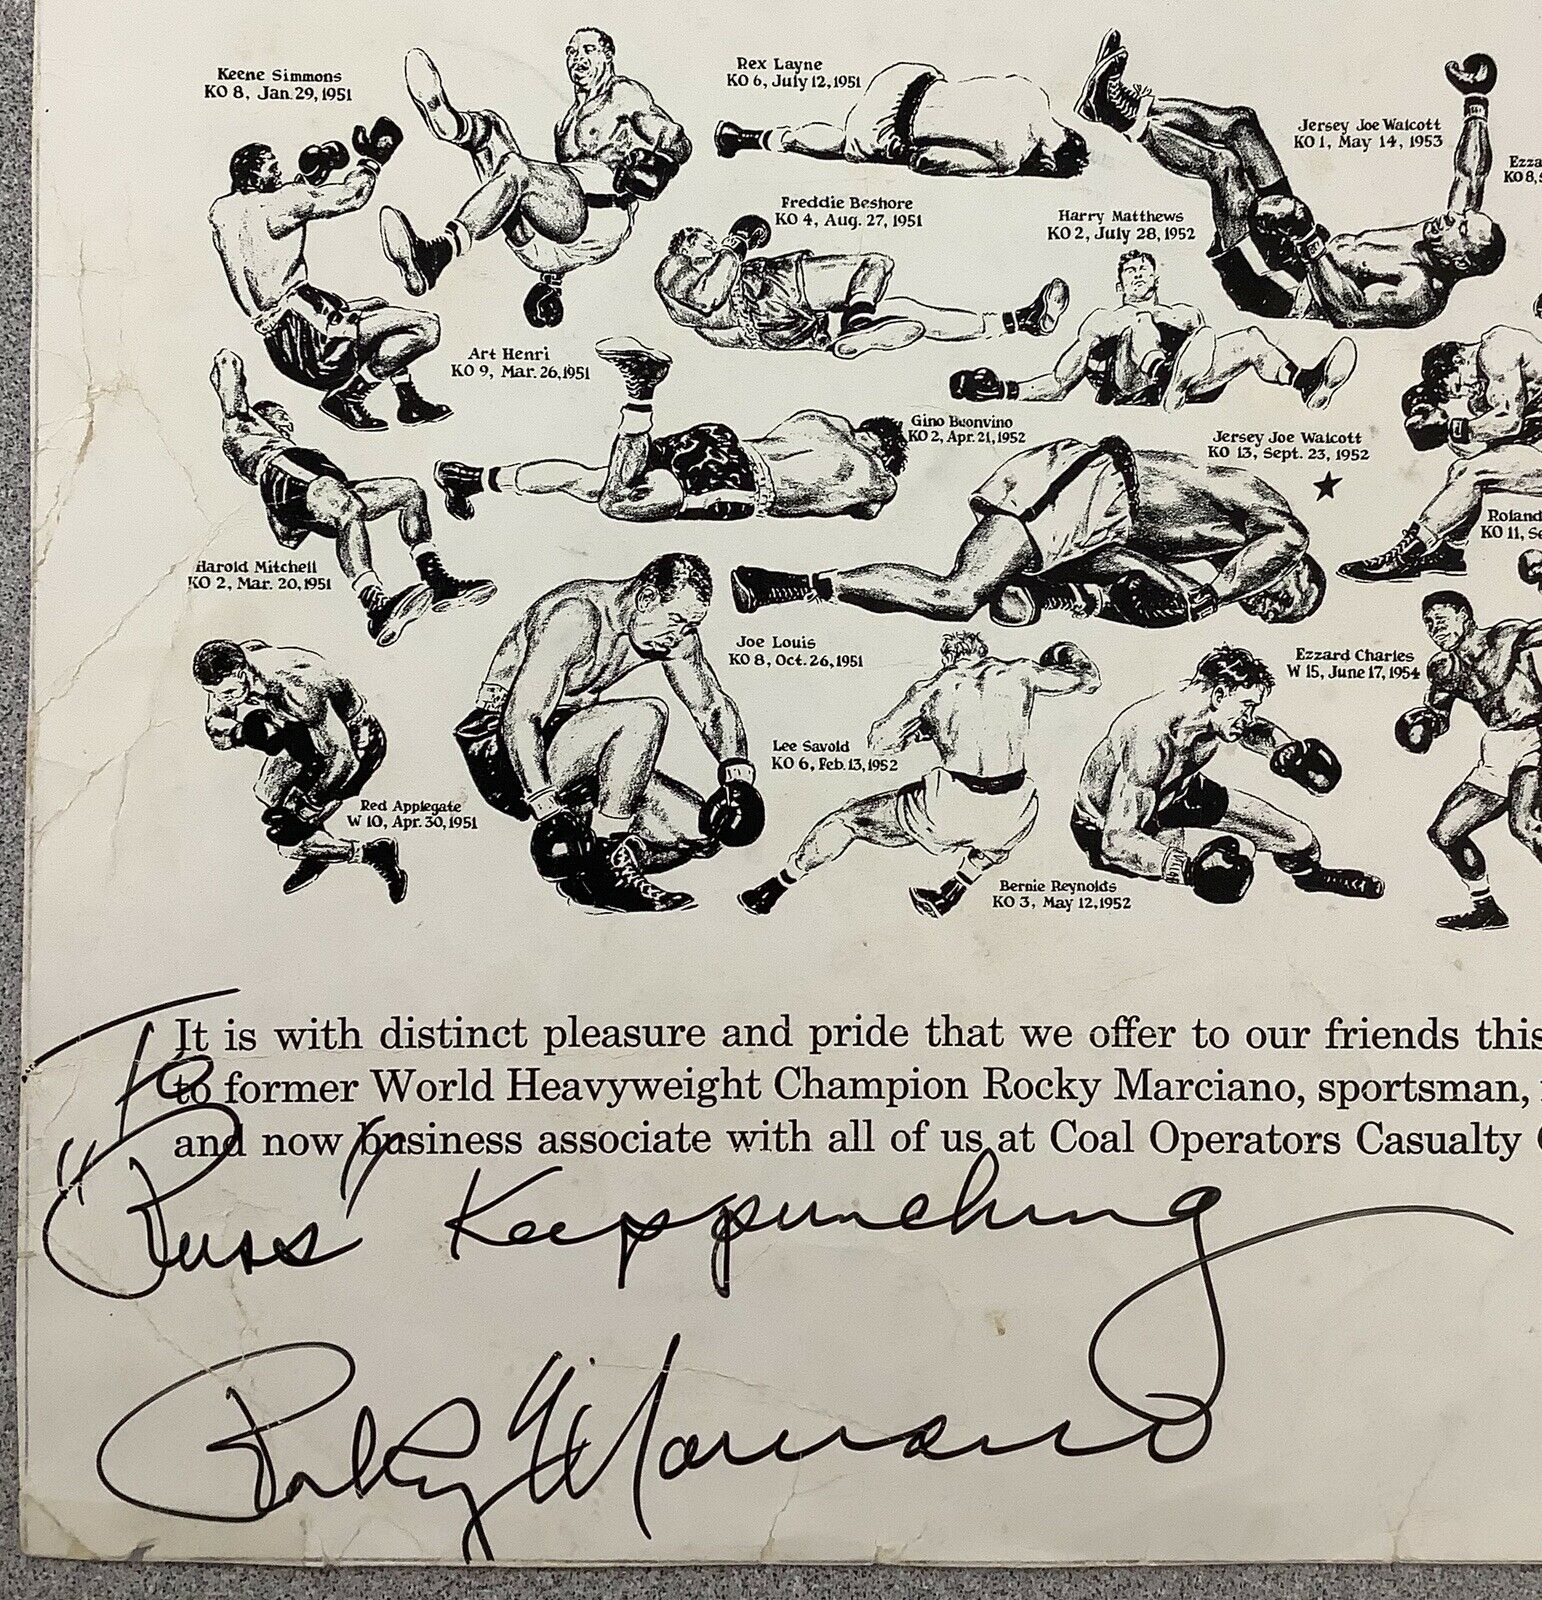 Keene Simmons
KO 8, Jan. 29, 1951
Rex Layne
KO 6, July 12, 1951
Jersey Joe Walcott
KO 1, May 14, 1953
Ezza
KO 8, S
Freddie Beshore
KO 4, Aug. 27, 1951
Harry Matthews
KO 2, July 28, 1952
Art Henri
KO 9, Mar. 26, 1951
Gino Buonvino
KO 2, Apr. 21, 1952
Jersey Joe Walcott
KO 13, Sept. 23, 1952
Roland
KO 11, Se
Harold Mitchell
KO 2, Mar. 20, 1951
Joe Louis
KO 8, Oct. 26, 1951
Ezzard Charles
W 15, June 17, 1954
Lee Savold
KO 6, Feb. 13, 1952
Red Applegate
W 10, Apr. 30, 1951
Bernie Reynolds
KO 3, May 12, 1952
It is with distinct pleasure and pride that we offer to our friends this
to former World Heavyweight Champion Rocky Marciano, sportsman,
and now business associate with all of us at Coal Operators Casualty
To
"Russ" Keep punching
Rocky Marciano